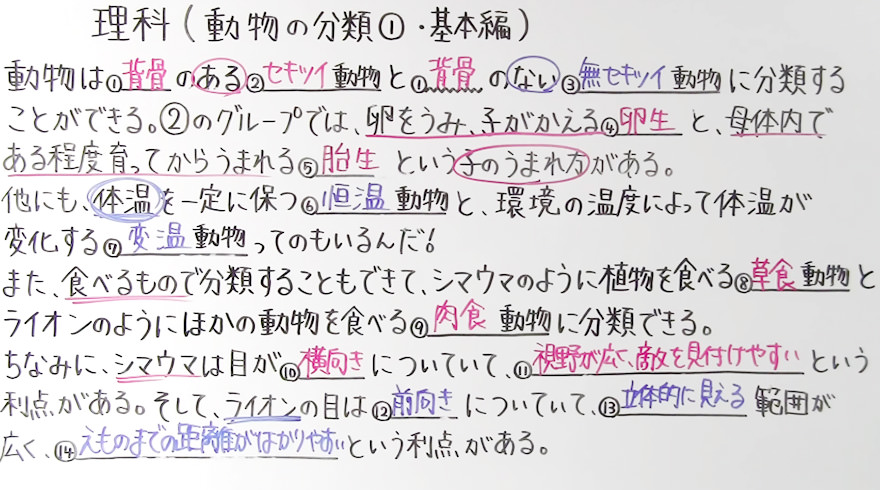 理科(動物の分類①・基本編)
動物は①背骨のある②セキツイ動物と①背骨のない③無セキツイ動物に分類する
ことができる。②のグループでは、卵をうみ、子がかえる④卵生と、母体内で
ある程度育ってからうまれる⑤胎生という子のうまれ方がある。
他にも、体温を一定に保つ⑥恒温動物と、環境の温度によって体温が
変化する⑦変温動物ってのもいるんだ!
また、食べるもので分類することもできて、シマウマのように植物を食べる⑧草食動物と
ライオンのようにほかの動物を食べる⑨肉食動物に分類できる。
ちなみに、シマウマは目が⑩横向きについていて、⑪視野が広く、敵を見付けやすいという
利点がある。そして、ライオンの目は⑫前向きについていて、⑬立体的に見える範囲が
広く、⑭えものまでの距離がはかりやすいという利点がある。